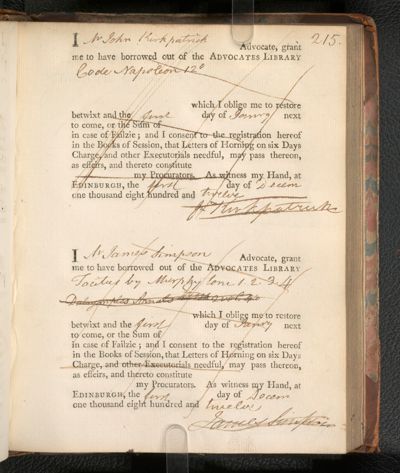 215.
I Mr John Kirkpatrick Advocate, grant
me to have borrowed out of the ADVOCATES LIBRARY
Code Napoleon 12o
which I oblige me to restore
betwixt and the first day of Janry next
to come, or the Sum of
in case of Failzie; and I consent to the registration hereof
in the Books of Session, that Letters of Horning on six Days
Charge, and other Executorials needful, may pass thereon,
as effeirs, and thereto constitute
my Procurators. As witness my Hand, at
EDINBURGH, the first day of Decem
one thousand eight hundred and twelve
Jn Kirkpatrick
I Mr James Simpson Advocate, grant
me to have borrowed out of the ADVOCATES LIBRARY
Tacitus by Murphy tom 1. 2. 3. 4
Dalrymples Annals
which I oblige me to restore
betwixt and the first day of Janry next
to come, or the Sum of
in case of Failzie; and I consent to the registration hereof
in the Books of Session, that Letters of Horning on six Days
Charge, and other Executorials needful, may pass thereon,
as effeirs, and thereto constitute
my Procurators. As witness my Hand, at
EDINBURGH, the first day of Decem
one thousand eight hundred and twelve
James Simpson